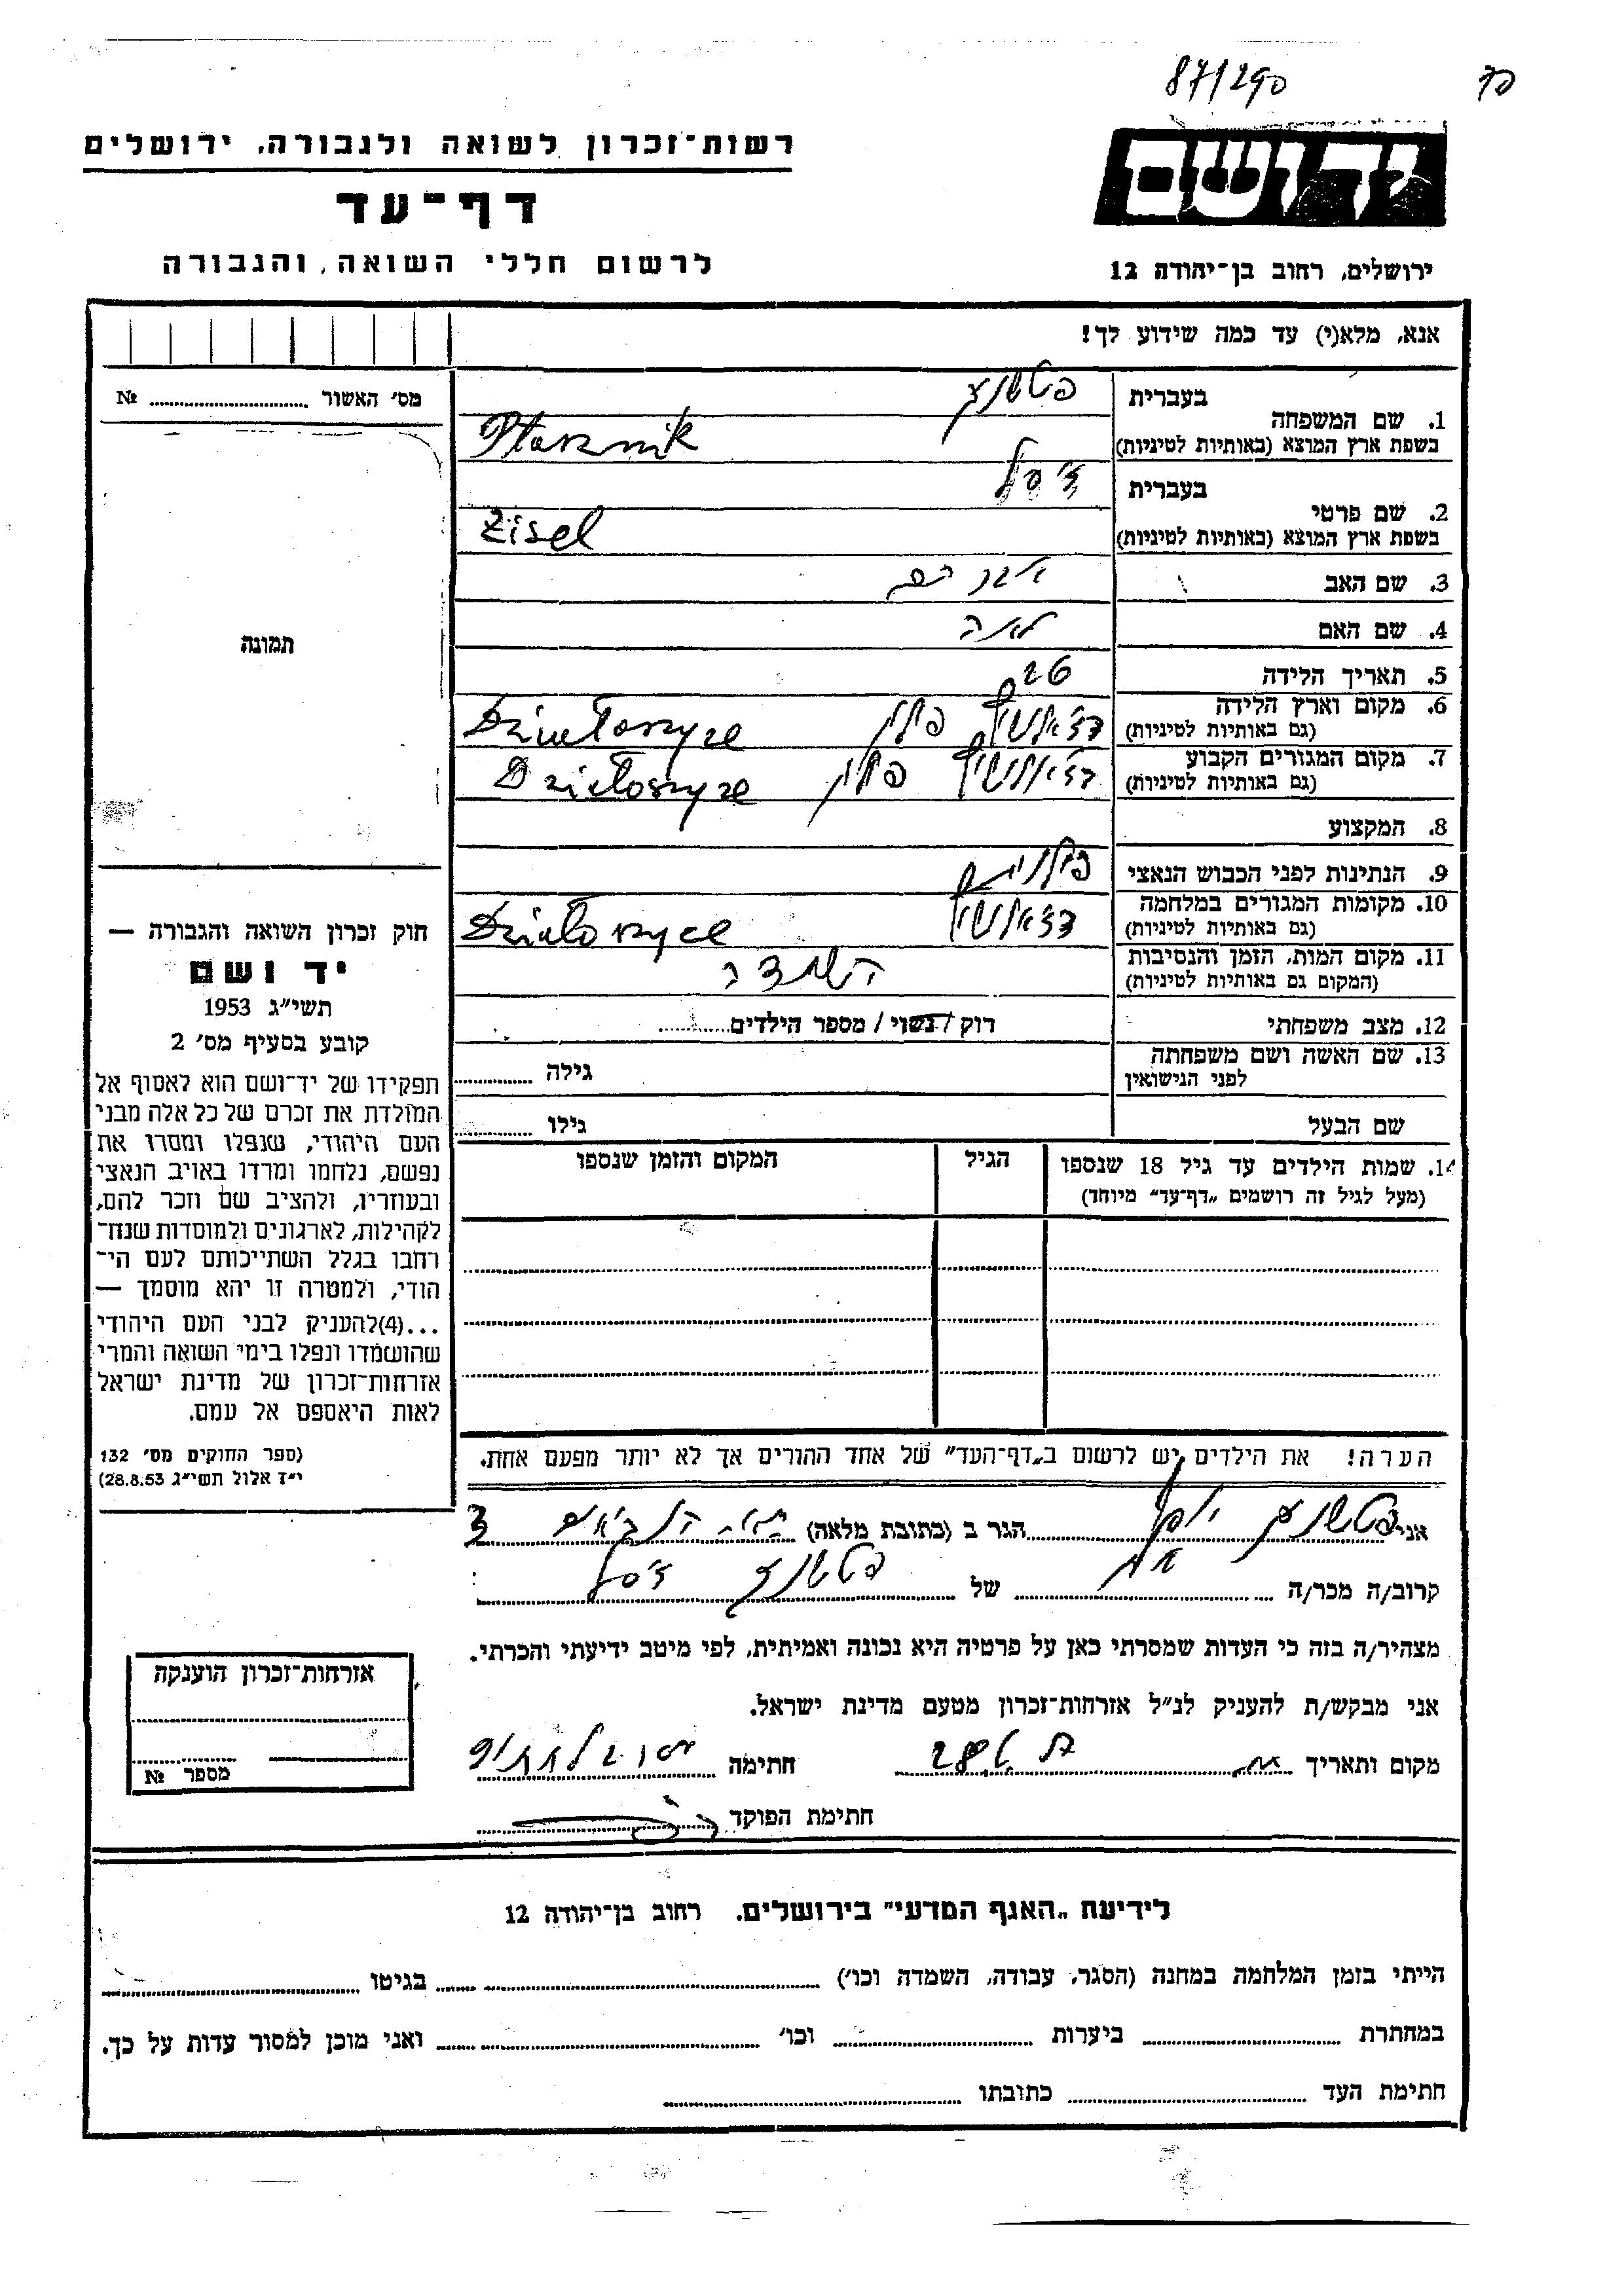 87/290
יד ושם
רשות־זכרון לשואה ולגבורה, ירושלים
דף־עד
לרשום חללי השואה והגבורה
ירושלים, רחוב בן־יהודה 12
אנא, מלא(י) עד כמה שידוע לך!
מס' האשור № 
תמונה
חוק זכרון השואה והגבורה —
יד ושם
תשי״ג 1953
קובע בסעיף מס' 2
תפקידו של יד־ושם הוא לאסוף אל
המולדת את זכרם של כל אלה מבני
העם היהודי, שנפלו ומסרו את
נפשם, נלחמו ומרדו באויב הנאצי
ובעוזריו, ולהציב שם וזכר להם,
לקהילות, לארגונים ולמוסדות שנח־
רחבו בגלל השתייכותם לעם הי־
הודי, ולמטרה זו יהא מוסמך —
...(4)להעניק לבני העם היהודי
שהושמדו ונפלו בימי השואה והמרי
אזרחות־זכרון של מדינת ישראל
לאות היאספם אל עמם.
(ספר החוקים מס' 132
י״ז אלול תשי״ג 28.8.53)
1. שם המשפחה
בעברית
בשפת ארץ המוצא (באותיות לטיניות) Ptasznik
2. שם פרטי
בעברית זיסל
בשפת ארץ המוצא (באותיות לטיניות) Zisel
3. שם האב אברהם
4. שם האם לאה
5. תאריך הלידה 26
6. מקום וארץ הלידה
(גם באותיות לטיניות) פולין Dzialoszyce
7. מקום המגורים הקבוע
(גם באותיות לטיניות) פולין Dzialoszyce
8. המקצוע
9. הנתינות לפני הכבוש הנאצי פולנית
10. מקומות המגורים במלחמה
(גם באותיות לטיניות) Dzialoszyce
11. מקום המות, הזמן והנסיבות
(המקום גם באותיות לטיניות) השמדה
12. מצב משפחתי רוק / נשוי / מספר הילדים
13. שם האשה ושם משפחתה
לפני הנישואין גילה
שם הבעל גילו
14. שמות הילדים עד גיל 18 שנספו
(מעל לגיל זה רושמים „דף־עד״ מיוחד)
הגיל
המקום והזמן שנספו
הערה! את הילדים יש לרשום ב„דף־העד״ של אחד ההורים אך לא יותר מפעם אחת.
אני הגר ב (כתובת מלאה) 3
קרוב/ה מכר/ה אח של זיסל
מצהיר/ה בזה כי העדות שמסרתי כאן על פרטיה היא נכונה ואמיתית, לפי מיטב ידיעתי והכרתי.
אני מבקש/ת להעניק לנ״ל אזרחות־זכרון מטעם מדינת ישראל.
מקום ותאריך חתימה
חתימת הפוקד
אזרחות־זכרון הוענקה
מספר №
לידיעת „האגף המדעי״ בירושלים. רחוב בן־יהודה 12
הייתי בזמן המלחמה במחנה (הסגר, עבודה, השמדה וכו') בגיטו
במחתרת ביערות וכו' ואני מוכן למסור עדות על כך.
חתימת העד כתובתו